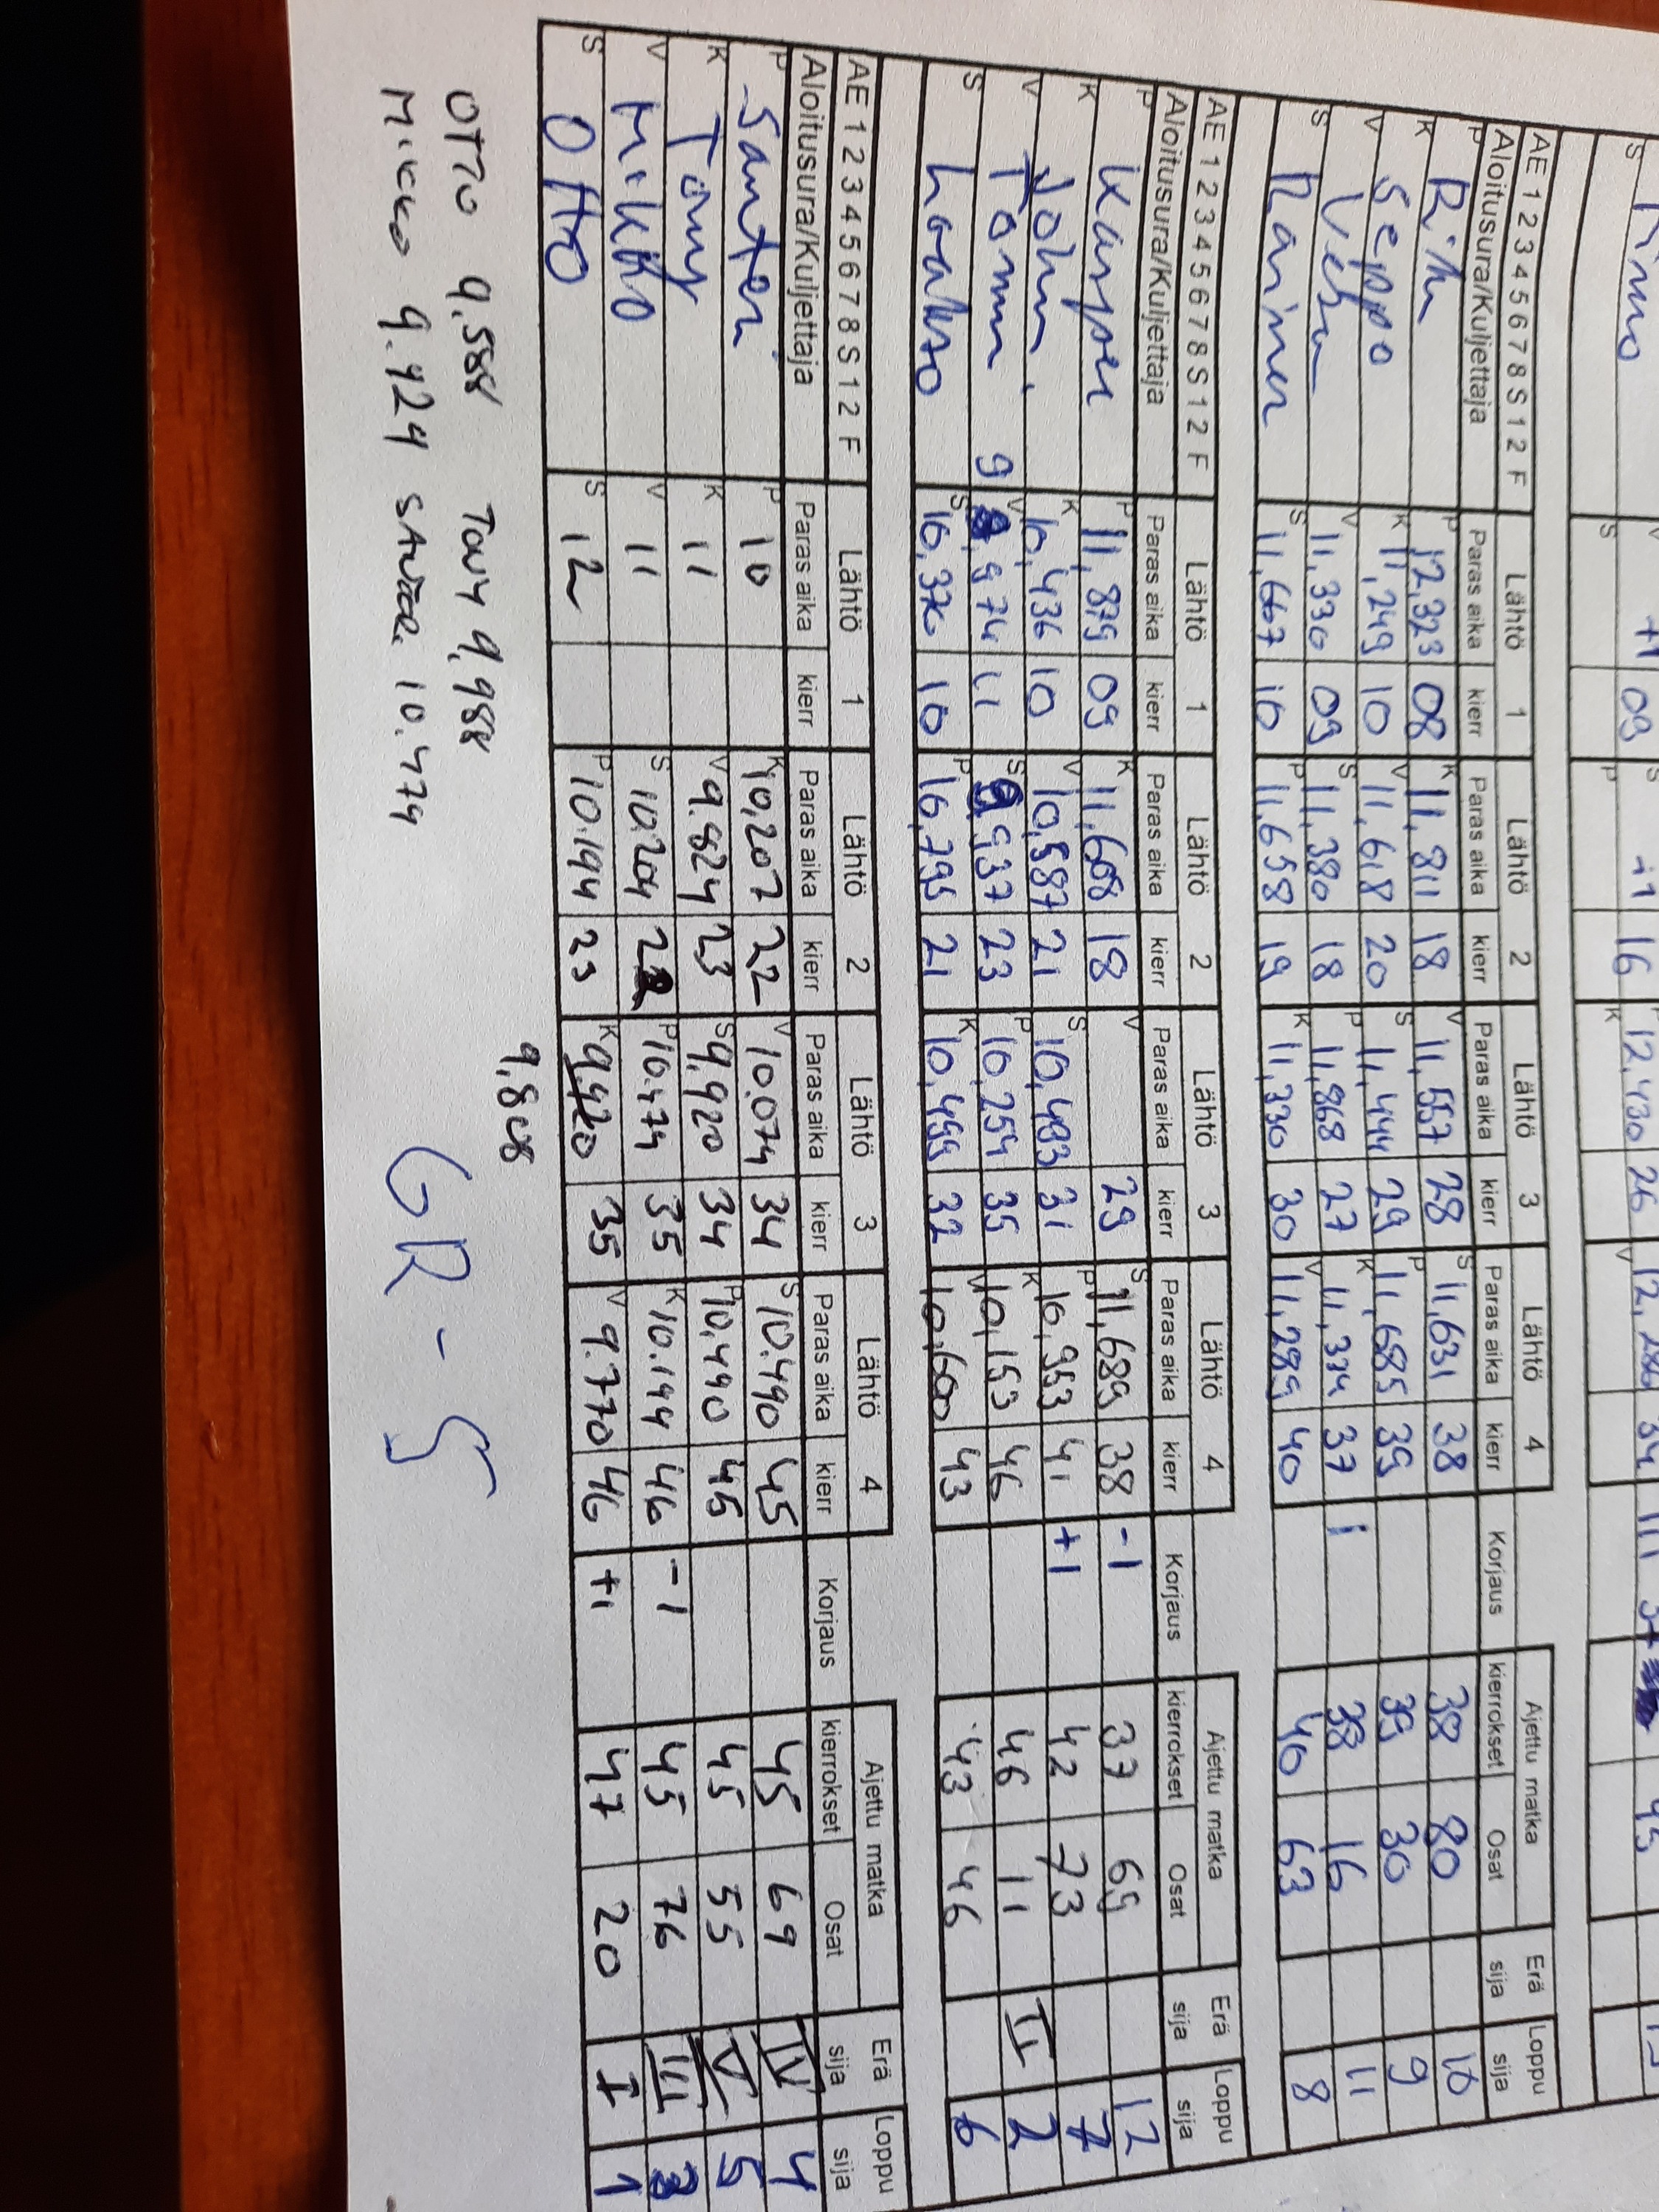 Timo +1 09 -1 16 12,430 26 12,286 34
AE 1 2 3 4 5 6 7 8 S 1 2 F Lähtö 1 Lähtö 2 Lähtö 3 Lähtö 4 Ajettu matka Erä Loppu
Aloitusura/Kuljettaja Paras aika kierr Paras aika kierr Paras aika kierr Paras aika kierr Korjaus kierrokset Osat sija sija
P Riku P 12,323 08 K 11,811 18 V 11,557 28 S 11,631 38 38 80 10
K Seppo K 11,249 10 V 11,618 20 S 11,444 29 P 11,685 39 39 30 9
V Vesa V 11,330 09 S 11,380 18 P 11,868 27 K 11,374 37 1 38 16 11
S Rainer S 11,667 10 P 11,658 19 K 11,330 30 V 11,289 40 40 63 8
AE 1 2 3 4 5 6 7 8 S 1 2 F Lähtö 1 Lähtö 2 Lähtö 3 Lähtö 4 Ajettu matka Erä Loppu
Aloitusura/Kuljettaja Paras aika kierr Paras aika kierr Paras aika kierr Paras aika kierr Korjaus kierrokset Osat sija sija
P Kasper P 11,879 09 K 11,608 18 V 29 S 11,689 38 -1 37 69 12
K Johni K 10,436 10 V 10,587 21 S 10,493 31 P 10,953 41 +1 42 73 7
V Tommi V 9,974 11 S 9,937 23 P 10,254 35 K 10,153 46 46 11 II 2
S Laakso S 10,370 10 P 10,795 21 K 10,499 32 V 10,600 43 43 46 6
AE 1 2 3 4 5 6 7 8 S 1 2 F Lähtö 1 Lähtö 2 Lähtö 3 Lähtö 4 Ajettu matka Erä Loppu
Aloitusura/Kuljettaja Paras aika kierr Paras aika kierr Paras aika kierr Paras aika kierr Korjaus kierrokset Osat sija sija
P Santeri P 10 K 10,207 22 V 10.074 34 S 10.490 45 45 69 IV 4
K Tony K 11 V 9.824 23 S 9,920 34 P 10,490 45 45 55 V 5
V Mikko V 11 S 10.204 22 P 10.474 35 K 10.144 46 -1 45 76 III 3
S Otto S 12 P 10.194 23 K 9,420 35 V 9.770 46 +1 47 20 I 1
9,808
OTTO 9,588 TONY 9,988
MIKKO 9.924 10.479
GR-5